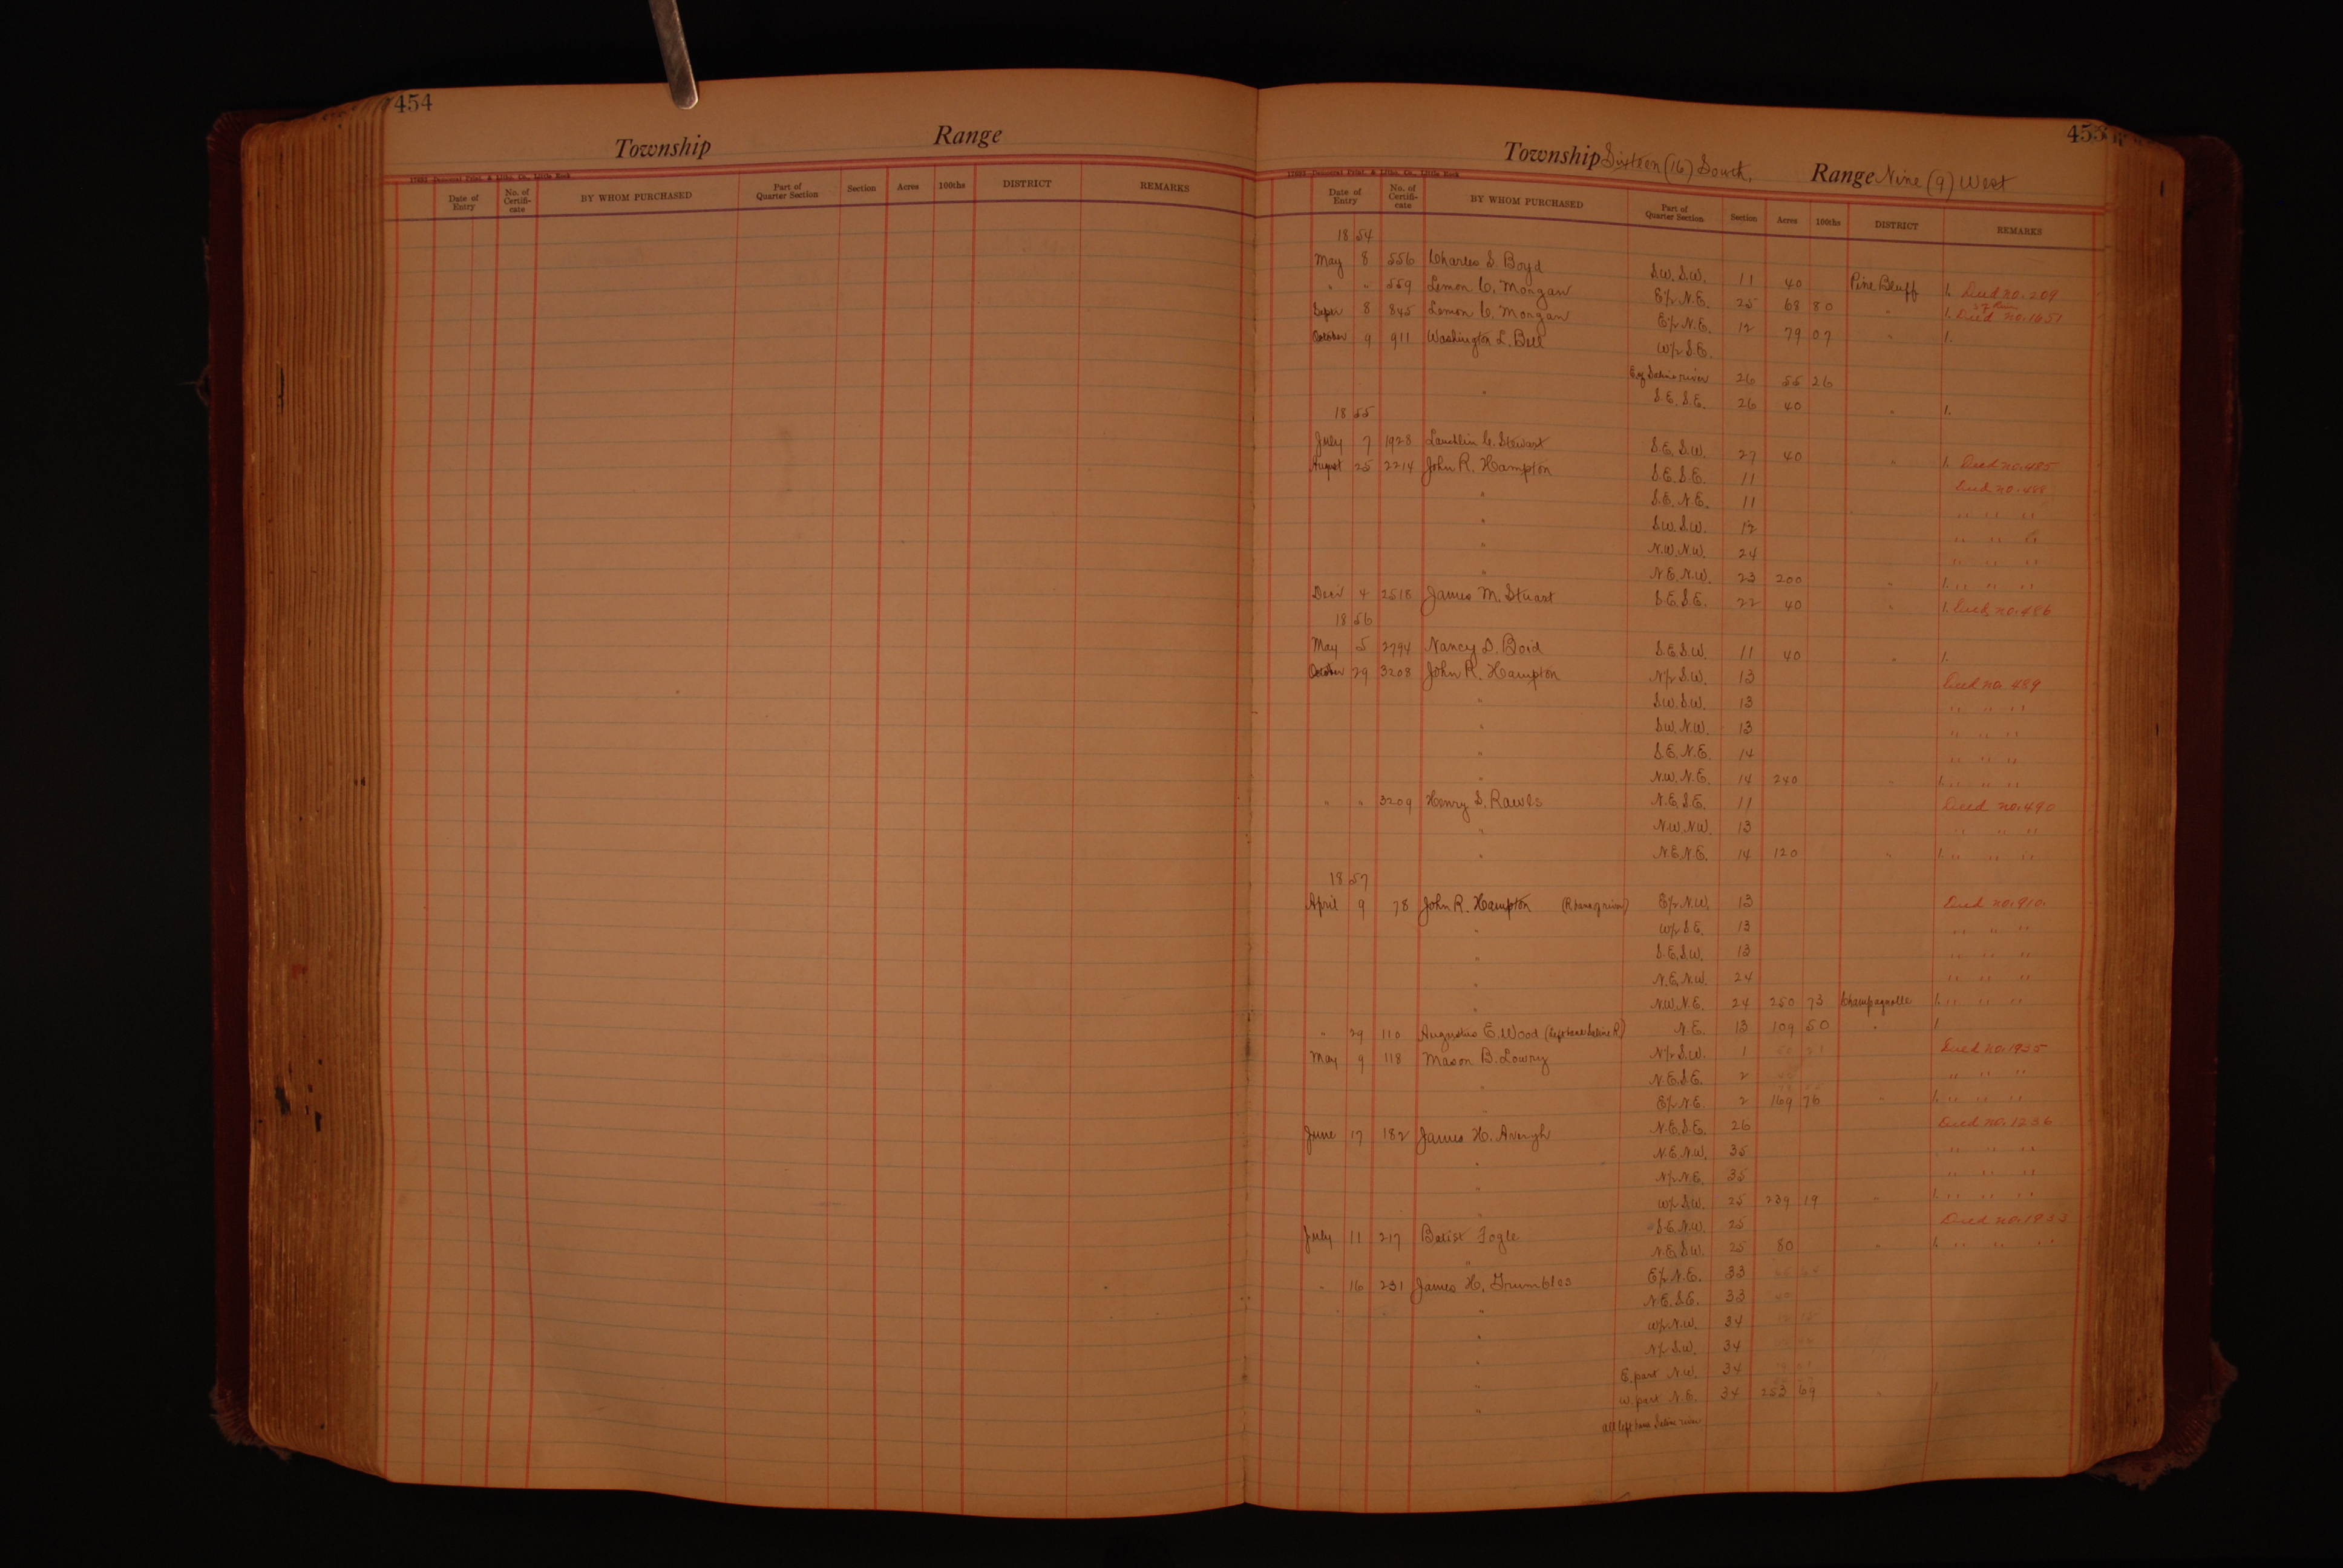 454
Township Range
Date of Entry No. of Certifi-cate BY WHOM PURCHASED Part of Quarter Section Section Acres 100ths DISTRICT REMARKS
455
Township Sixteen (16) South. Range Nine (9) West
Date of Entry No. of Certifi-cate BY WHOM PURCHASED Part of Quarter Section Section Acres 100ths DISTRICT REMARKS
1854
May 8 556 Charles S. Boyd S.W. S.W. 11 40 Pine Bluff 1. Deed no. 209
" " 559 Lemon C. Morgan E/2 N.E. 25 68 80 " 1. Deed no. 1651
Sepr 8 845 Lemon C. Morgan E/2 N.E. 12 79 07 " 1.
October 9 911 Washington L. Bell W/2 S.E.
E of Saline river 26 55 26
" S.E. S.E. 26 40 " 1.
1855
July 7 1928 Lauchlin C. Stewart S.E. S.W. 27 40 " 1. Deed no. 485
August 25 2214 John R. Hampton S.E. S.E. 11 Deed no. 488
" S.E. N.E. 11 " " "
" S.W. S.W. 12 " " "
" N.W. N.W. 24 " " "
" N.E. N.W. 23 200 " 1. " " "
Decr 4 2518 James M. Stuart S.E. S.E. 22 40 " 1. Deed no. 486
1856
May 5 2794 Nancy S. Boid S.E. S.W. 11 40 " 1.
October 29 3208 John R. Hampton N/2 S.W. 13 Deed no. 489
" S.W. S.W. 13 " " "
" S.W. N.W. 13 " " "
" S.E. N.E. 14 " " "
" N.W. N.E. 14 240 " 1. " " "
" " 3209 Henry S. Rawls N.E. S.E. 11 Deed no. 490
" N.W. N.W. 13 " " "
" N.E. N.E. 14 120 " 1. " " "
1857
April 9 78 John R. Hampton (R bank of river) E/2 N.W. 13 Deed no. 910.
" W/2 S.E. 13 " " "
" S.E. S.W. 13 " " "
" N.E. N.W. 24 " " "
" N.W. N.E. 24 250 73 Champagnolle 1. " " "
" 29 110 Augustus E. Wood (Left bank Saline R) N.E. 13 109 50 " 1
May 9 118 Mason B. Lowry N/2 S.W. 1 Deed no. 1935
" N.E. S.E. 2 " " "
" E/2 N.E. 2 169 76 " 1. " " "
June 17 182 James H. N.E. S.E. 26 Deed no. 1236
" N.E. N.W. 35 " " "
" N/2 N.E. 35 " " "
" W/2 S.W. 25 239 19 " 1. " " "
July 11 217 Batist Fogle S.E. N.W. 25 Deed no. 1933
" N.E. S.W. 25 80 " 1. " " "
" 16 231 James H. Grumbles E/2 N.E. 33
" N.E. S.E. 33
" W/2 N.W. 34
" N/2 S.W. 34
" E. part N.W. 34
" W. part N.E. 34 253 69 " 1
all left bank Saline river